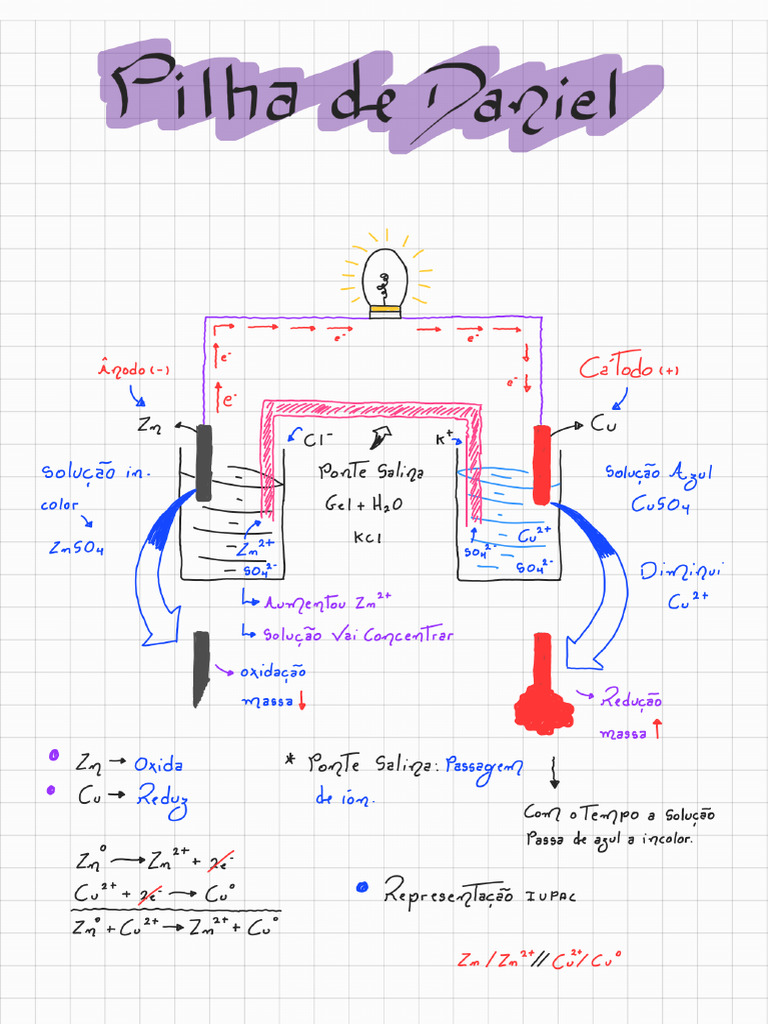 Pilha de Daniel
e⁻
e⁻
e⁻
e⁻
e⁻
Ânodo (-)
Zn
Cátodo (+)
Cu
Cl⁻
K⁺
Solução in-
color
ZnSO₄
Ponte Salina
Gel + H₂O
KCl
Solução Azul
CuSO₄
Zn²⁺
SO₄²⁻
SO₄²⁻
Cu²⁺
SO₄²⁻
Diminui
Cu²⁺
Aumentou Zn²⁺
Solução Vai Concentrar
oxidação
massa ↓
Redução
massa ↑
Zn → Oxida
Cu → Reduz
* Ponte Salina: Passagem
de íon.
Com o Tempo a Solução
Passa de azul a incolor.
Zn⁰ → Zn²⁺ + 2e⁻
Cu²⁺ + 2e⁻ → Cu⁰
Zn⁰ + Cu²⁺ → Zn²⁺ + Cu⁰
Representação IUPAC
Zn / Zn²⁺ // Cu²⁺ / Cu⁰